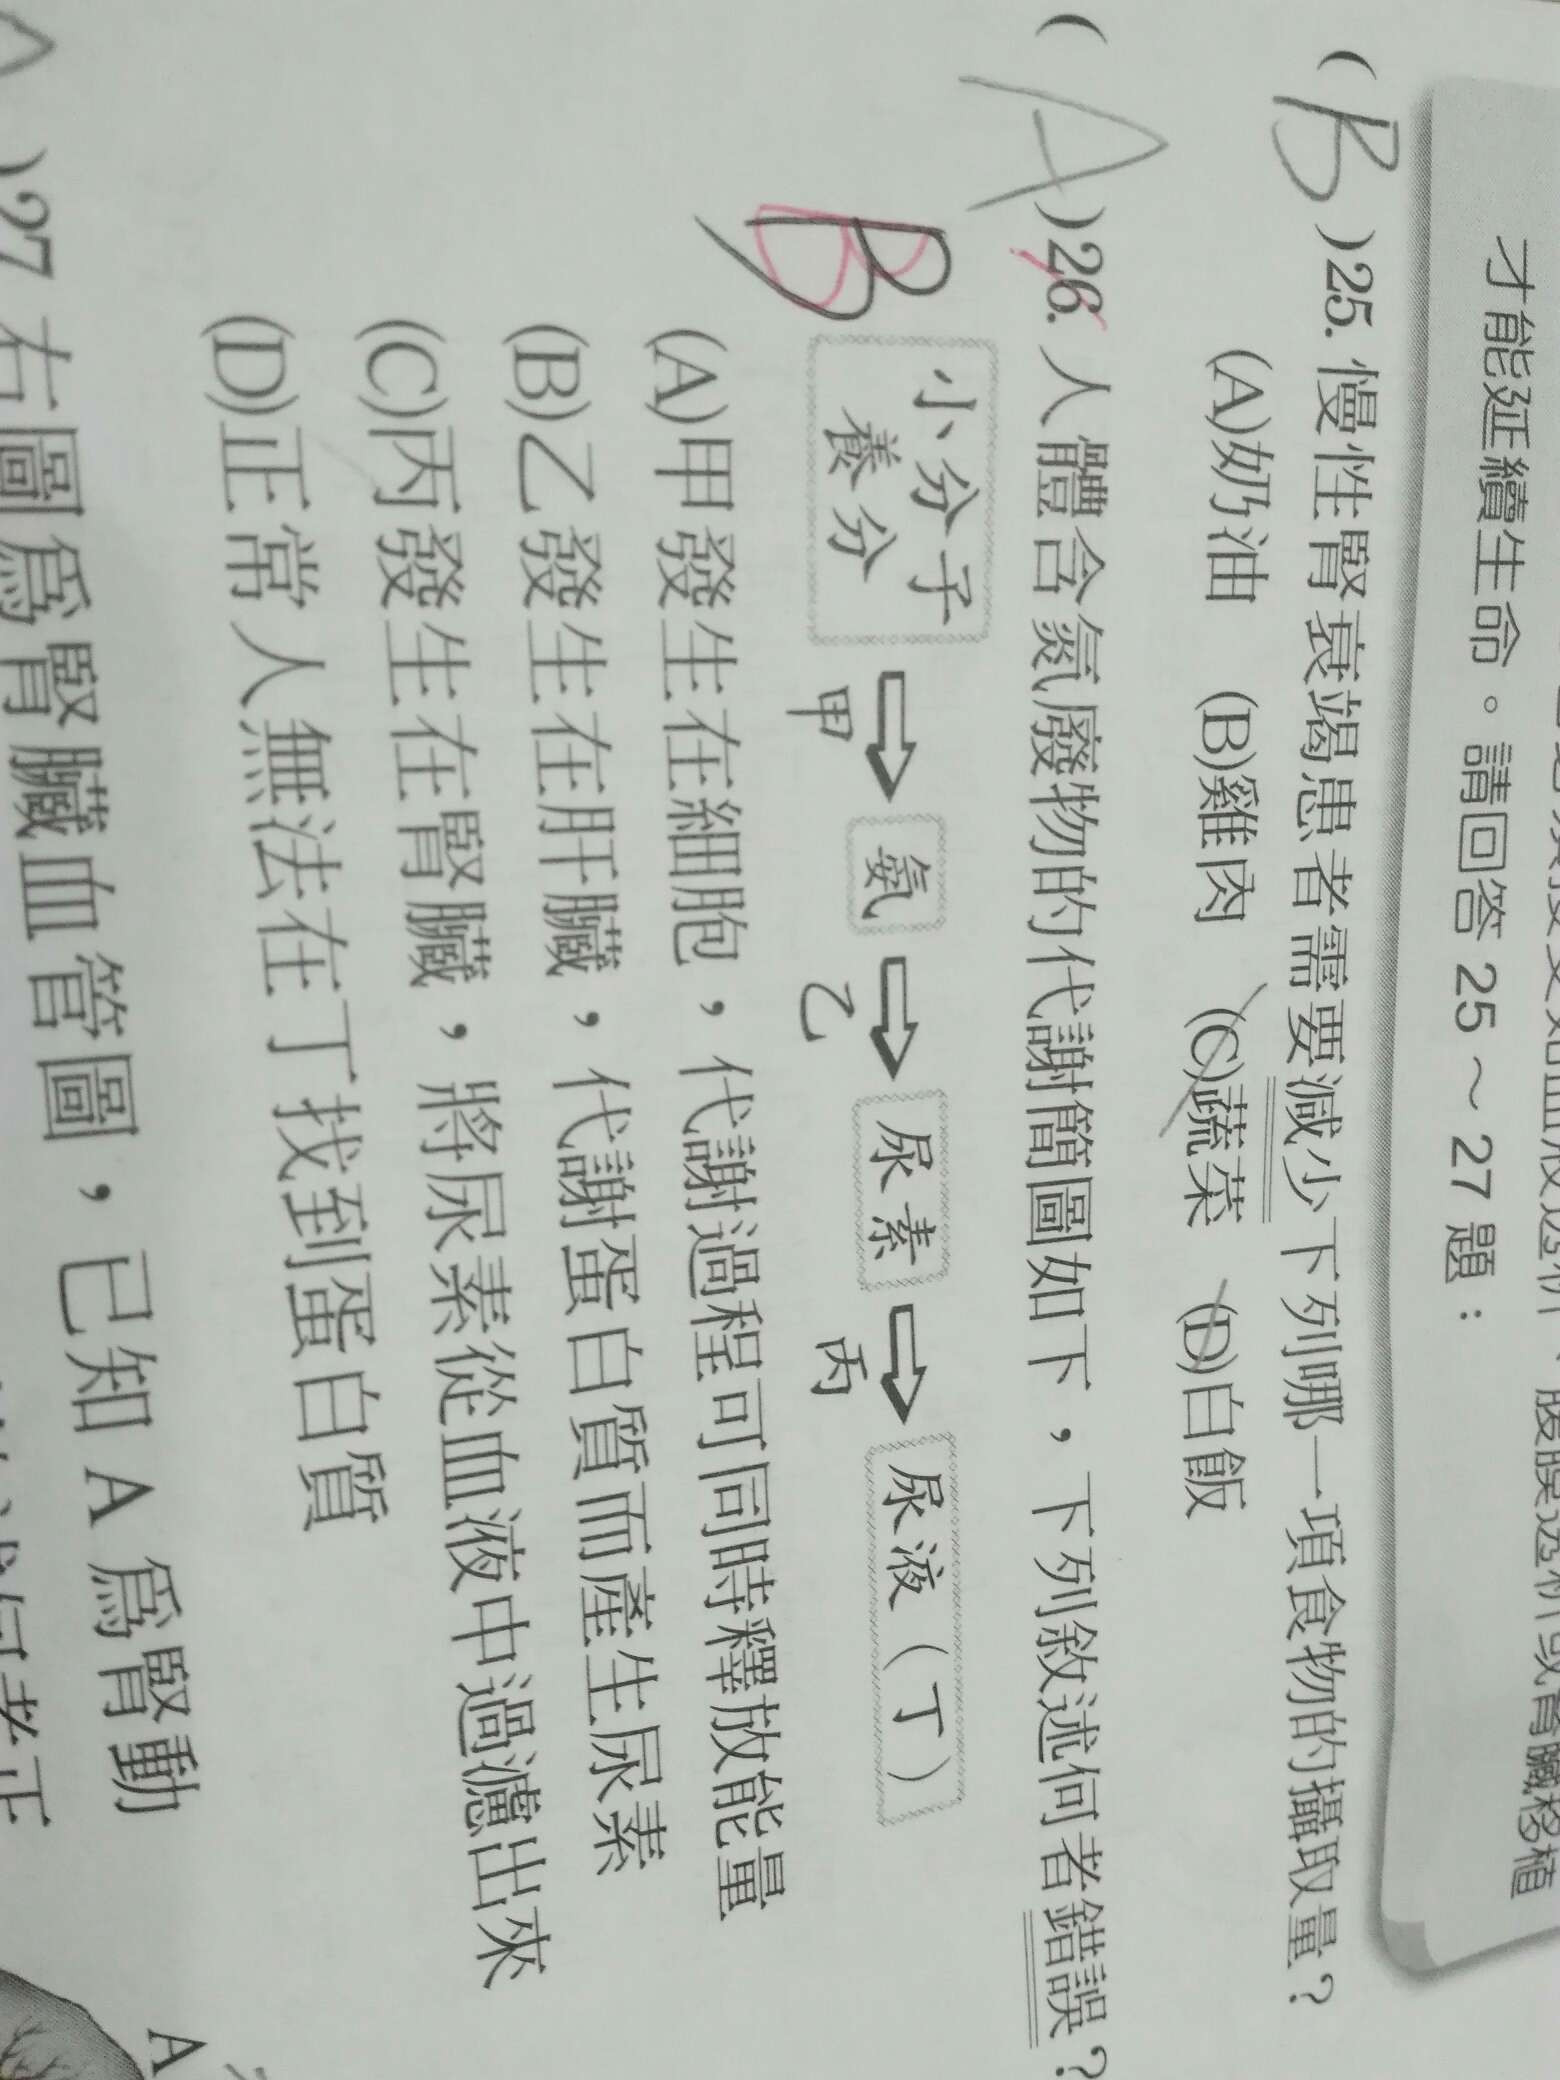 血液透析、腹膜透析或腎臟移植
才能延續生命。請回答 25～27 題：
( B )25. 慢性腎衰竭患者需要減少下列哪一項食物的攝取量？
(A)奶油 (B)雞肉 (C)蔬菜 (D)白飯
( A )26. 人體含氮廢物的代謝簡圖如下，下列敘述何者錯誤？
B
小分子養分 甲 氨 乙 尿素 丙 尿液（丁）
(A)甲發生在細胞，代謝過程可同時釋放能量
(B)乙發生在肝臟，代謝蛋白質而產生尿素
(C)丙發生在腎臟，將尿素從血液中過濾出來
(D)正常人無法在丁找到蛋白質
)27 右圖為腎臟血管圖，已知 A 為腎動
A